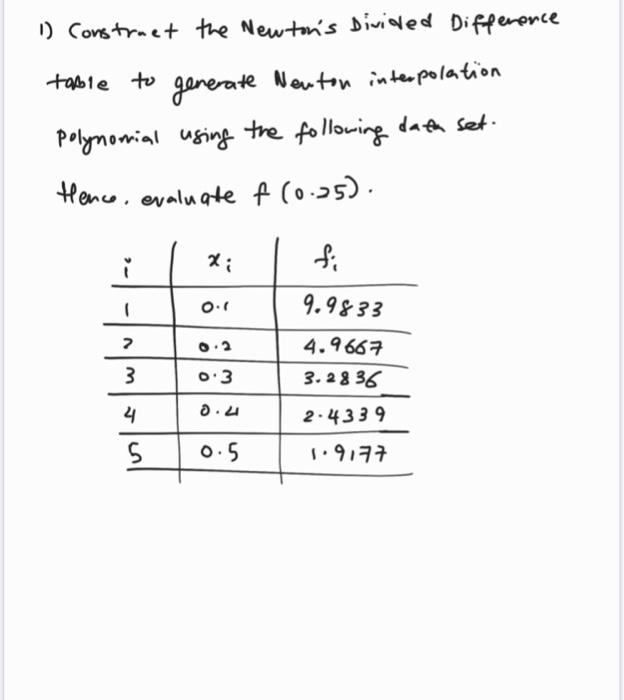 1) Construct the Newton's Divided Difference
table to generate Newton interpolation
polynomial using the following data set.
Hence, evaluate f (0.25).
i xi fi
1 0.1 9.9833
2 0.2 4.9667
3 0.3 3.2836
4 0.4 2.4339
5 0.5 1.9177